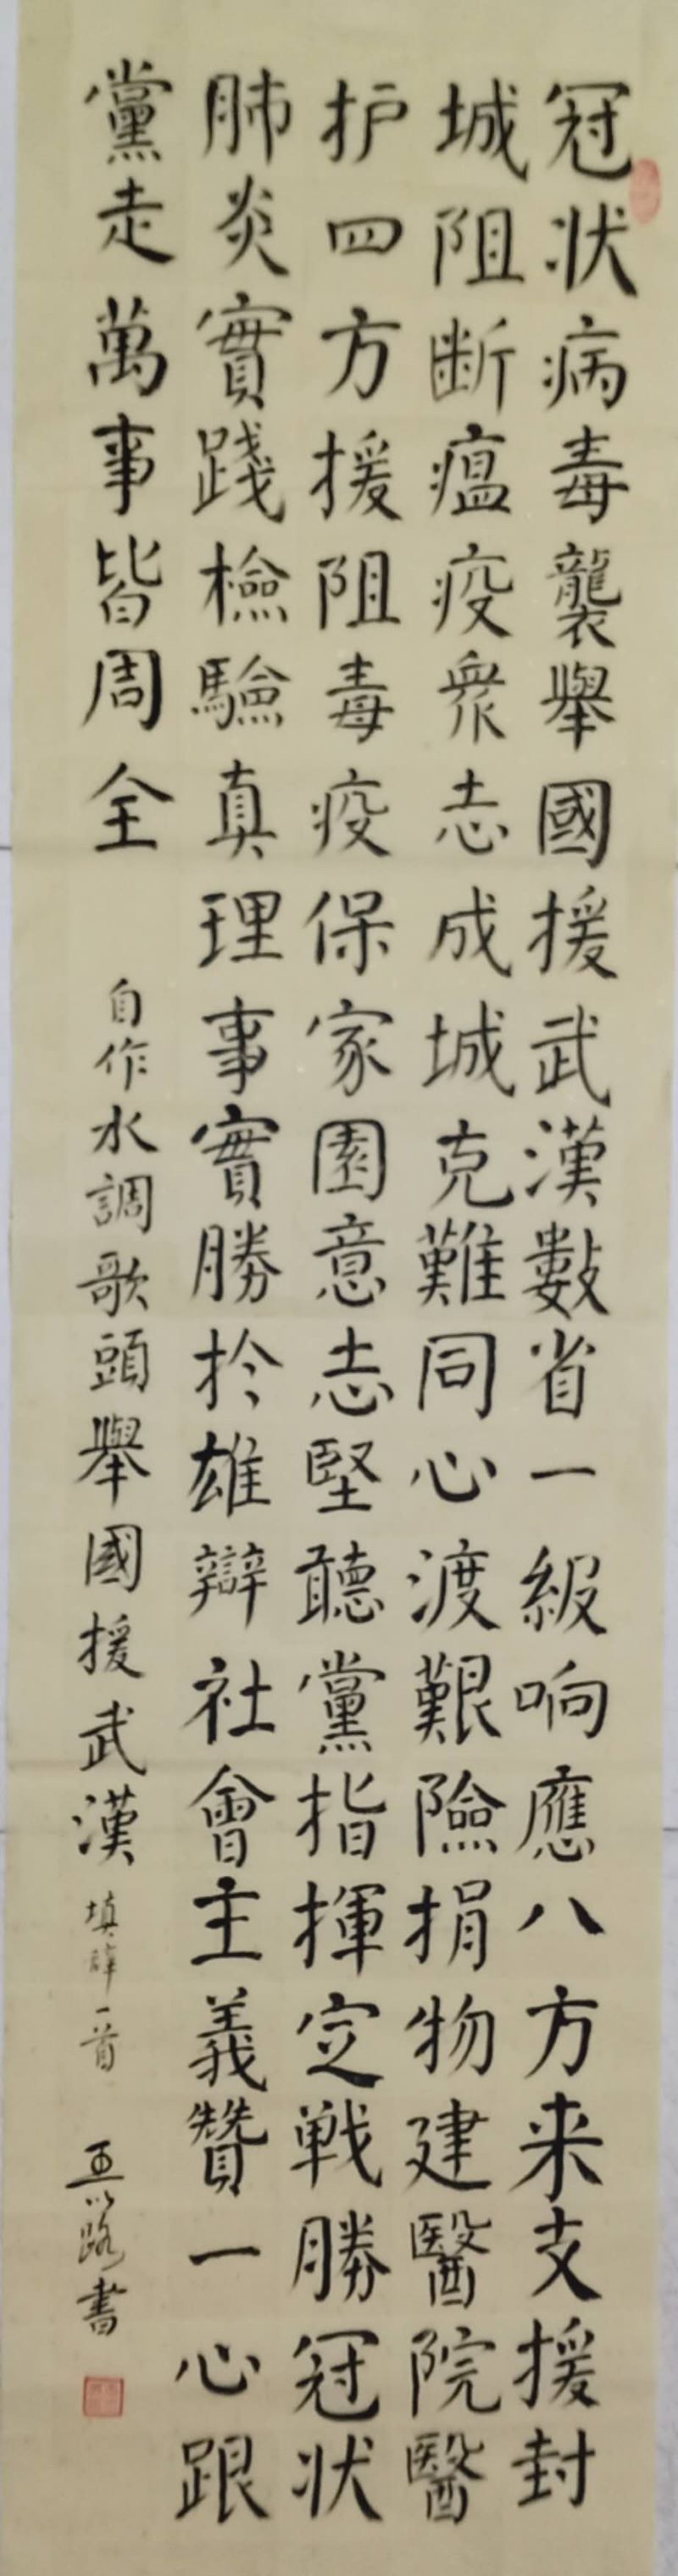 冠状病毒襲舉國援武漢數省一級响應八方来支援封
城阻断瘟疫衆志成城克難同心渡艱險捐物建醫院醫
护四方援阻毒疫保家園意志堅聽黨指揮定戦勝冠状
肺炎實踐檢驗真理事實勝扵雄辯社會主義贊一心跟
黨走萬事皆周全
自作水調歌頭舉國援武漢填詞一首 路書